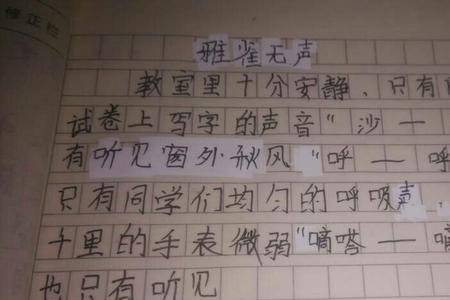 修正栏
雅雀无声
教室里十分安静、只有
试卷上写字的声音"沙一
有听见窗外秋风"呼一呼
只有同学们均匀的呼吸声、
千里的手表微弱"嘀嗒一嘀
也只有听见